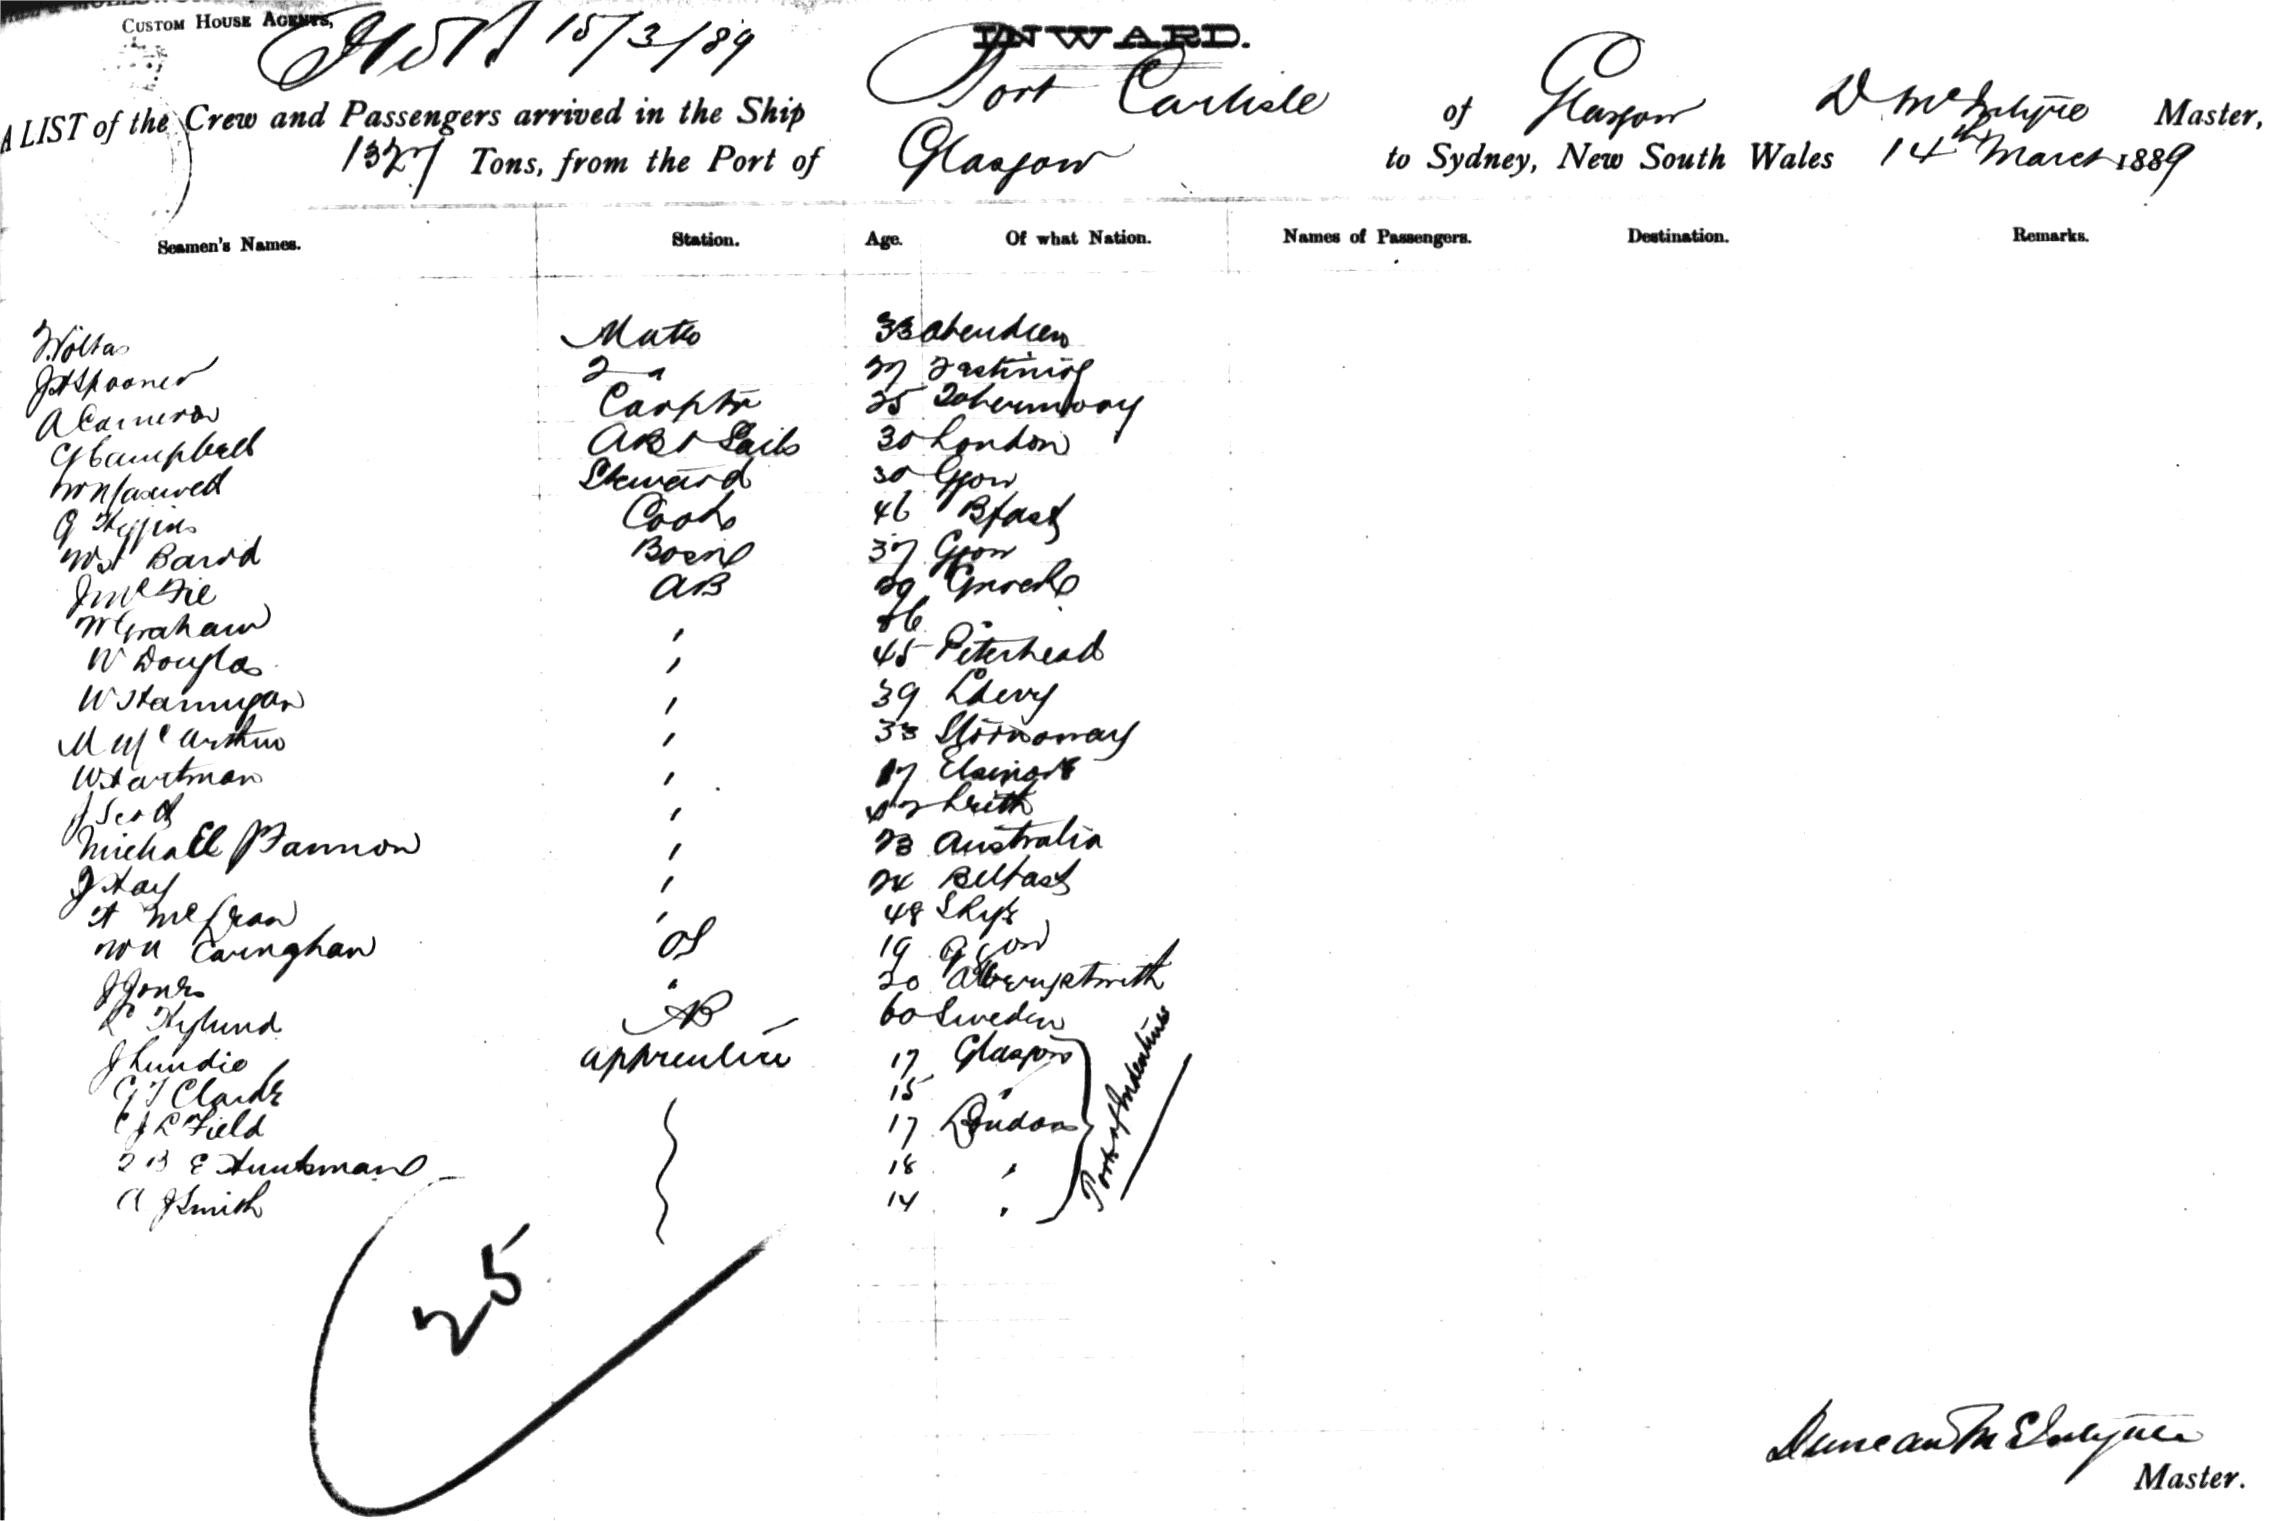 CUSTOM HOUSE AGENTS,
15/3/89
INWARD.
A LIST of the Crew and Passengers arrived in the Ship Port Carlisle of Glasgow D McIntyre Master,
1327 Tons, from the Port of Glasgow to Sydney, New South Wales 14th March 1889
Seamen's Names. Station. Age. Of what Nation. Names of Passengers. Destination. Remarks.
Mate 33 Aberdeen
J H Spooner 2 " 27
A Cameron Carptr 25 Tobermory
G Campbell AB & Sails 30 London
W Maxwell Steward 30 Gow
G Higgins Cook 46 Bfast
Wm Baird Bosn 37 Gow
J McFie AB 29 Gnock
W Graham , 36 "
W Douglas , 45 Peterhead
W Hannigan , 39 Lderry
M McArthur , 33 Stornoway
W Hartman , 17 Elsinore
J Scott , Leith
Michall Fannon , 23 Australia
J Hay , 24 Belfast
A McLean , 48 Skye
Wm Caringhan OS 19 Gow
J Jones " 20 Aberystwith
Hylund AB 60 Sweden
J Lundie apprentice 17 Glasgow
G T Clark 15 "
C J L Field 17 London
B E Huntsman 18 "
A J Smith 14 "
Port of Indenture
25
Duncan McIntyre
Master.